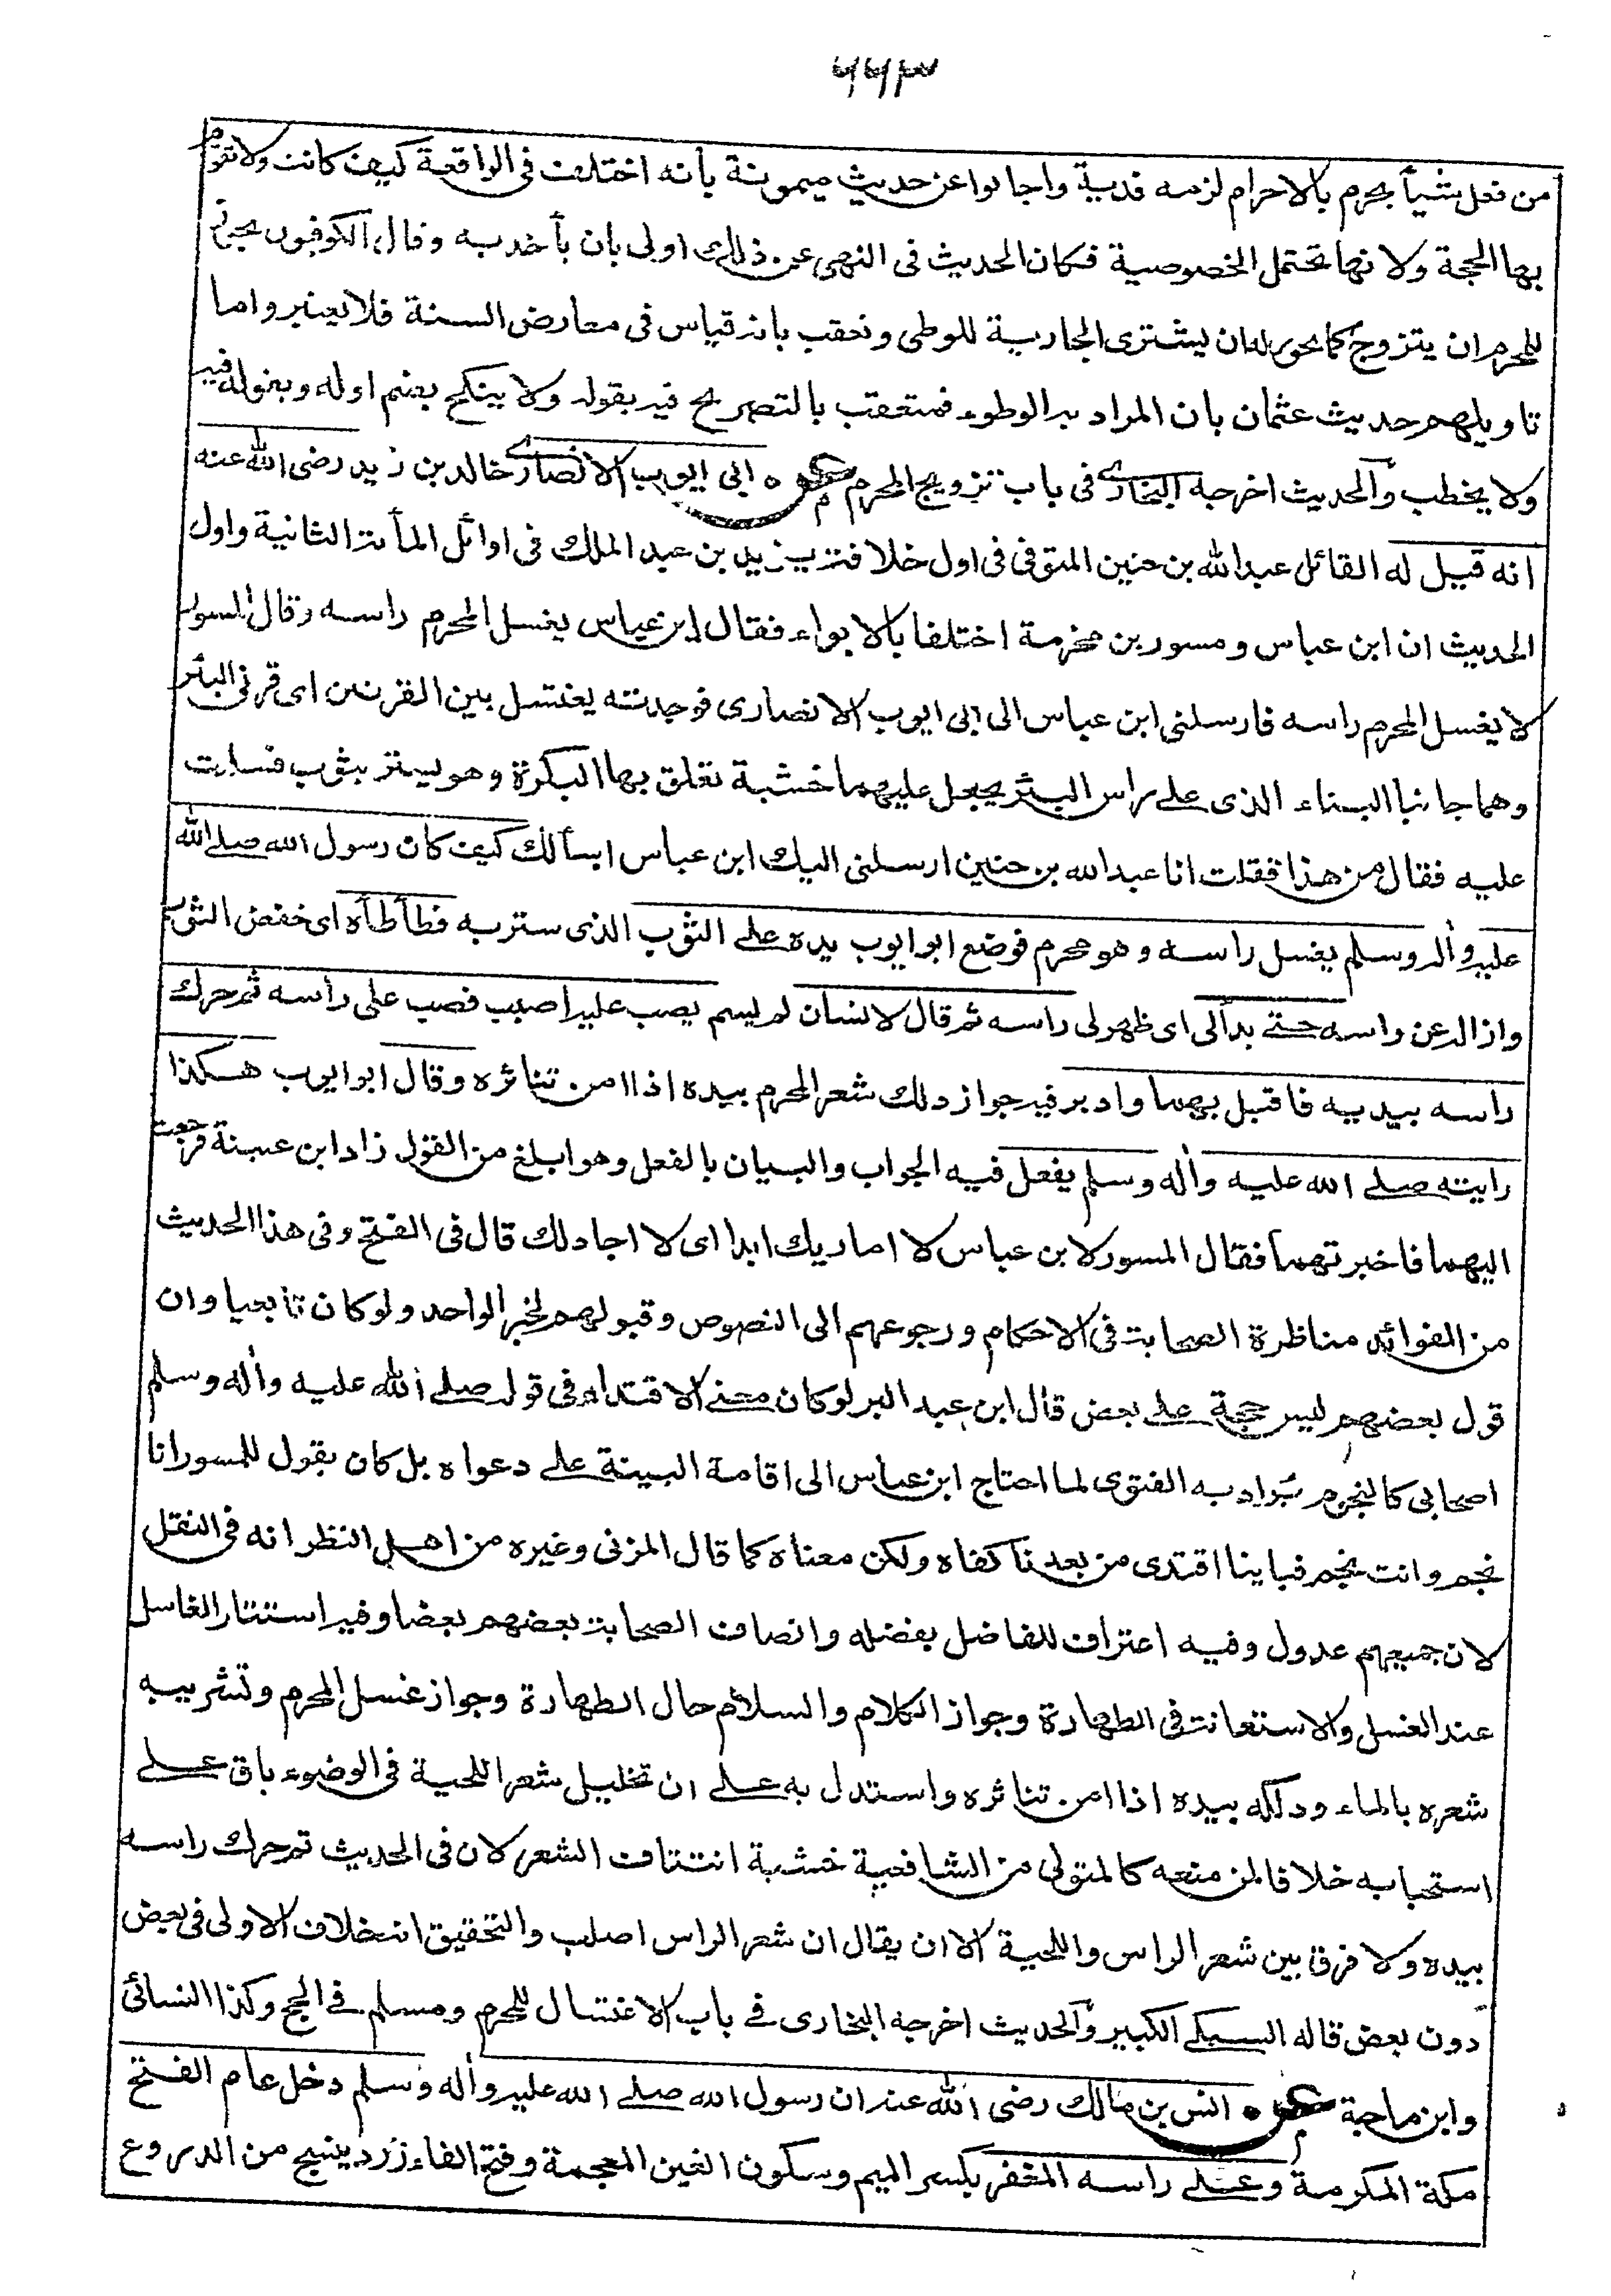 ٦٦٣
من فعل شيأ يحرم بالاحرام لزمه فدية واجابوا عن حديث ميمونة بأنه اختلف فى الواقعة كيف كانت ولا تقوم
بها الحجة ولانها تحتمل الخصوصية فكان الحديث فى النهى عن ذلك اولى بان يأخذ به وقال الكوفيون يجوز
للمحرم ان يتزوج كما يجوز له ان يشترى الجارية للوطى وتعقب بانه قياس فى معارض السنة فلا يعتبر واما
تاويلهم حديث عثمان بان المراد به الوطوء فمتعقب بالتصريح فيه بقوله ولا ينكح بضم اوله وبقوله فيه
ولا يخطب والحديث اخرجه البخارى فى باب تزويج المحرم عن ابى ايوب الانصارى خالد بن زيد رضى الله عنه
انه قيل له القائل عبد الله بن حنين المتوفى فى اول خلافته يزيد بن عبد الملك فى اوائل المأته الثانية واول
الحديث ان ابن عباس ومسور بن مخرمة اختلفا بالابواء فقال ابن عباس يغسل المحرم راسه وقال المسور
لا يغسل المحرم راسه فارسلنى ابن عباس الى ابى ايوب الانصارى فوجدته يغتسل بين القرنين اى قرنى البئر
وهما جانبا البناء الذى على راس البئر يجعل عليهما خشبة تعلق بها البكرة وهو يستر بثوب فسلمت
عليه فقال من هذا فقلت انا عبد الله بن حنين ارسلنى اليك ابن عباس ايسألك كيف كان رسول الله صلى الله
عليه وأله وسلم يغسل راسه وهو محرم فوضع ابو ايوب يده على الثوب الذى ستر به فطأطأه اى خفض الثوب
وازاله عن راسه حتى بدألى اى ظهر لى راسه ثم قال لانسان لم يسم يصب عليه اصبب فصب على رأسه ثم حرك
راسه بيديه فاقبل بهما وادبر فيه جواز دلك شعر المحرم بيده اذا امن تناثره وقال ابو ايوب هكذا
رايته صلى الله عليه وأله وسلم يفعل فيه الجواب والبيان بالفعل وهو ابلغ من القول زاد ابن عيينة فرجعت
اليهما فاخبرتهما فقال المسور لابن عباس لا اماريك ابدا اى لا اجادلك قال فى الفتح وفى هذا الحديث
من الفوائد مناظرة الصحابة فى الاحكام ورجوعهم الى النصوص وقبولهم لخبر الواحد ولو كان تابعيا وان
قول بعضهم ليس حجة على بعض قال ابن عبد البر لو كان معنى الاقتداء فى قوله صلى الله عليه وأله وسلم
اصحابى كالنجوم يُراد به الفتوى لما احتاج ابن عباس الى اقامة البينة على دعواه بل كان يقول للمسور انا
نجم وانت نجم فباينا اقتدى من بعدنا كفاه ولكن معناه كما قال المزنى وغيره من اهل النظر انه فى النقل
لان جميعهم عدول وفيه اعتراف للفاضل بفضله وانصاف الصحابة بعضهم بعضا وفيه استتار الغاسل
عند الغسل والاستعانة فى الطهارة وجواز الكلام والسلام حال الطهارة وجواز غسل المحرم وتشريبه
شعره بالماء ودلكه بيده اذا امن تناثره واستدل به على ان تخليل شعر اللحية فى الوضوء باق على
استحبابه خلافا لمن منعه كالمتولى من الشافعية خشية انتتاف الشعر لان فى الحديث ثم حرك راسه
بيده ولا فرق بين شعر الراس واللحية الا ان يقال ان شعر الراس اصلب والتحقيق انه خلاف الاولى فى بعض
دون بعض قاله السبكى الكبير والحديث اخرجه البخارى فى باب الاغتسال للمحرم ومسلم فى الحج وكذا النسائى
وابن ماجة عن انس بن مالك رضى الله عنه ان رسول الله صلى الله عليه وأله وسلم دخل عام الفتح
مكة المكرمة وعلى راسه المغفر بكسر الميم وسكون الغين المعجمة وفتح الفاء زرد ينسج من الدروع